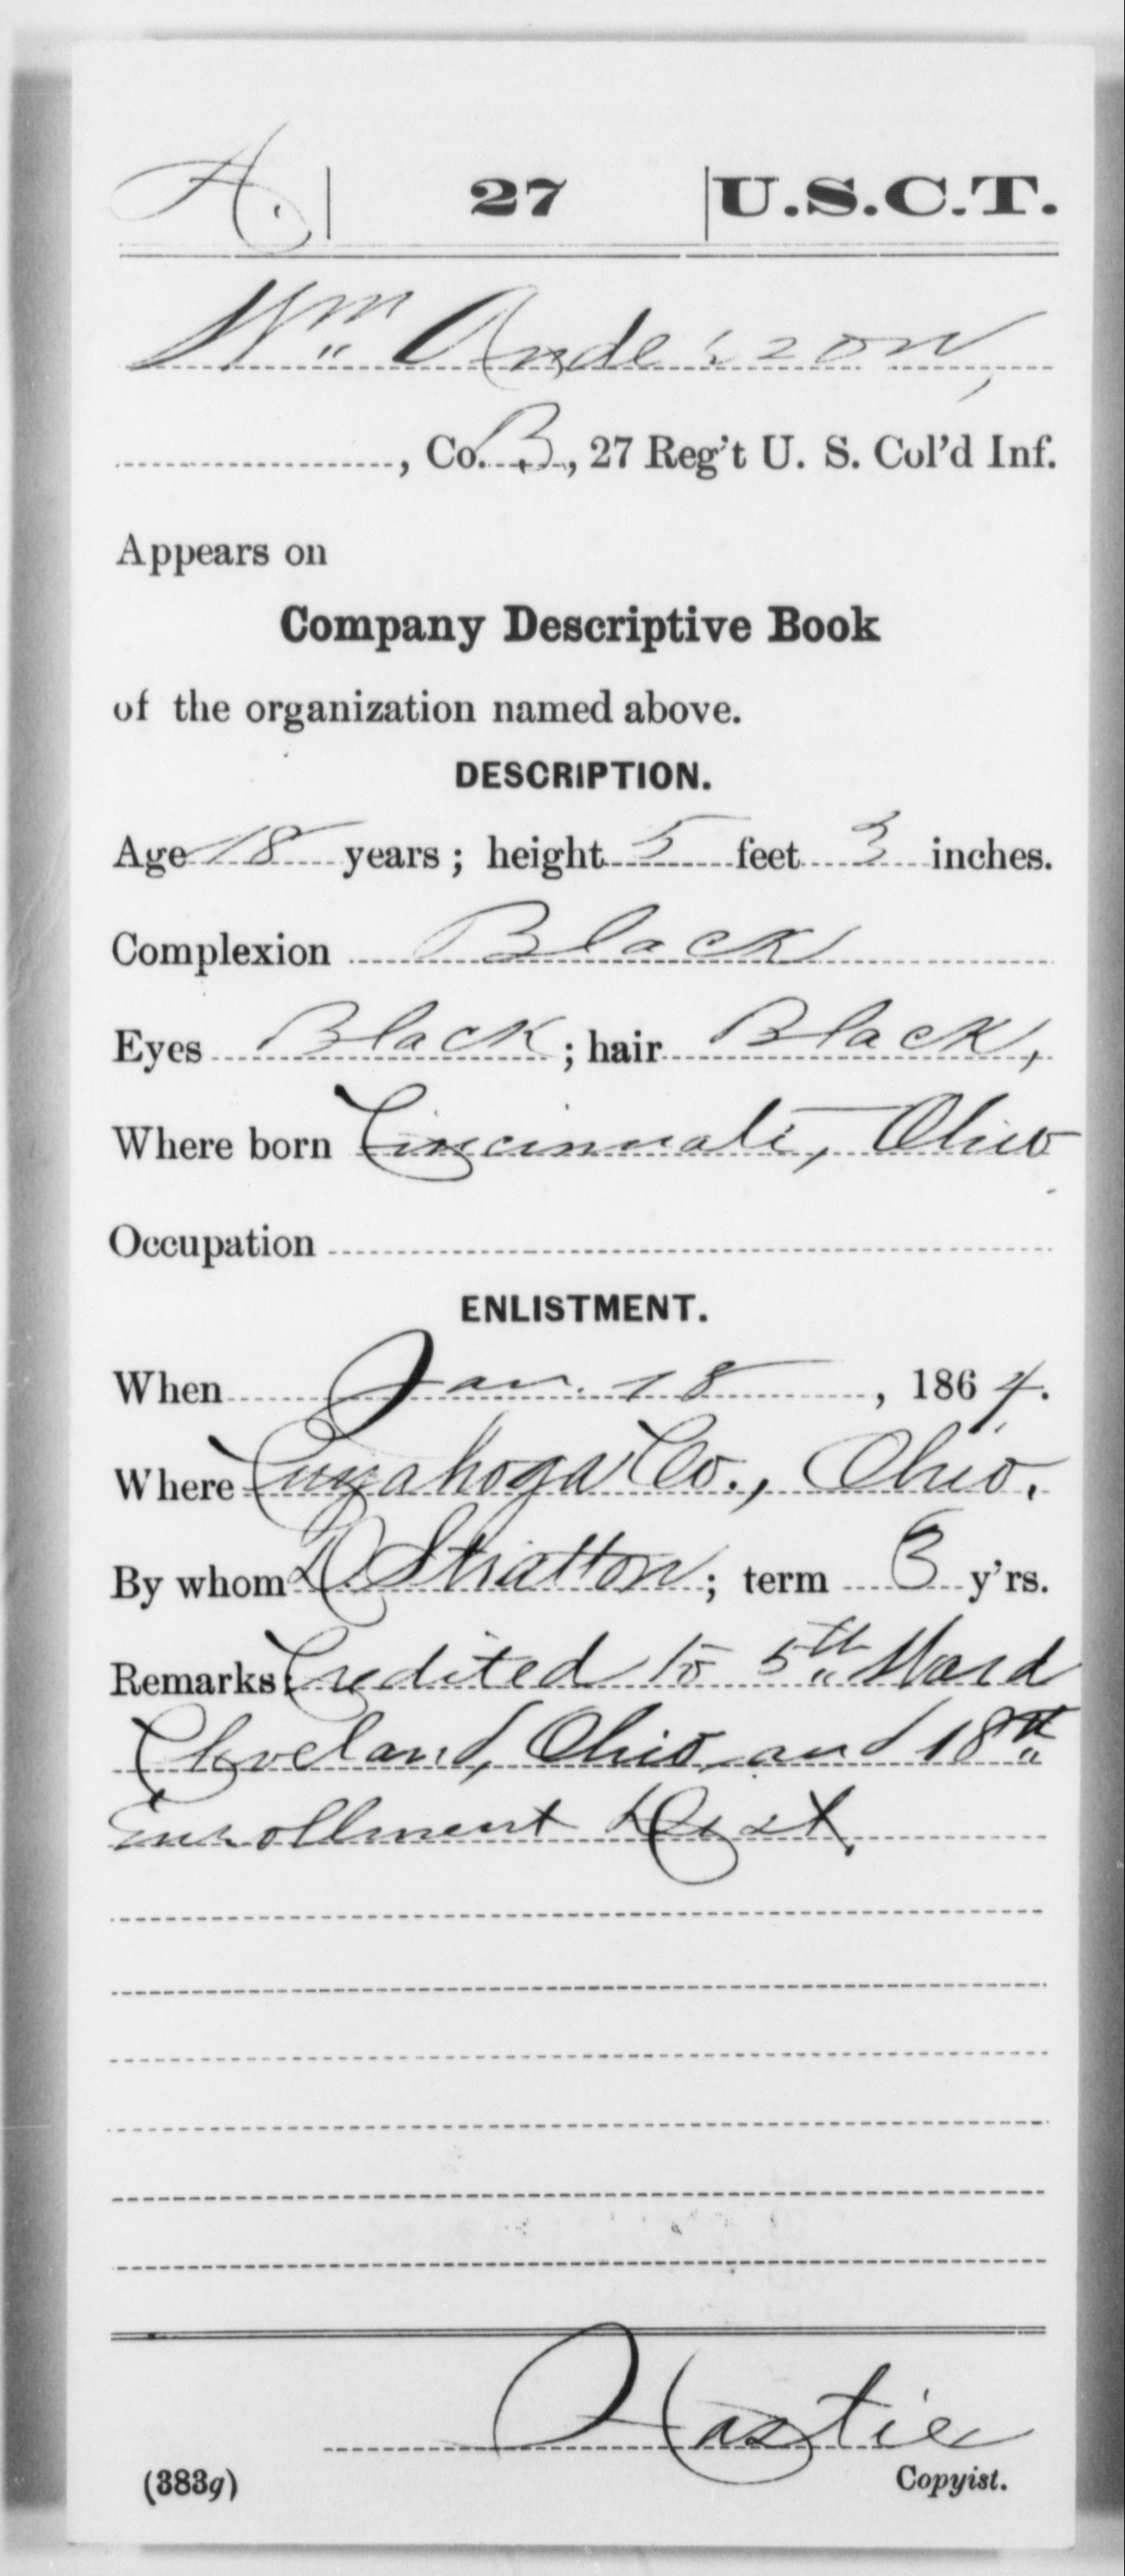 A. | 27 | U.S.C.T.
Wm Anderson,
, Co. B, 27 Reg't U. S. Col'd Inf.
Appears on
Company Descriptive Book
of the organization named above.
DESCRIPTION.
Age 18 years; height 5 feet 3 inches.
Complexion Black
Eyes Black; hair Black,
Where born Cincinnati, Ohio
Occupation
ENLISTMENT.
When Jan. 18, 1864.
Where Cuyahoga Co., Ohio.
By whom D. Stratton; term 3 y'rs.
Remarks: Credited to 5th Ward
Cleveland, Ohio and 18th
Enrollment Dist.
Hastie
(383g) Copyist.